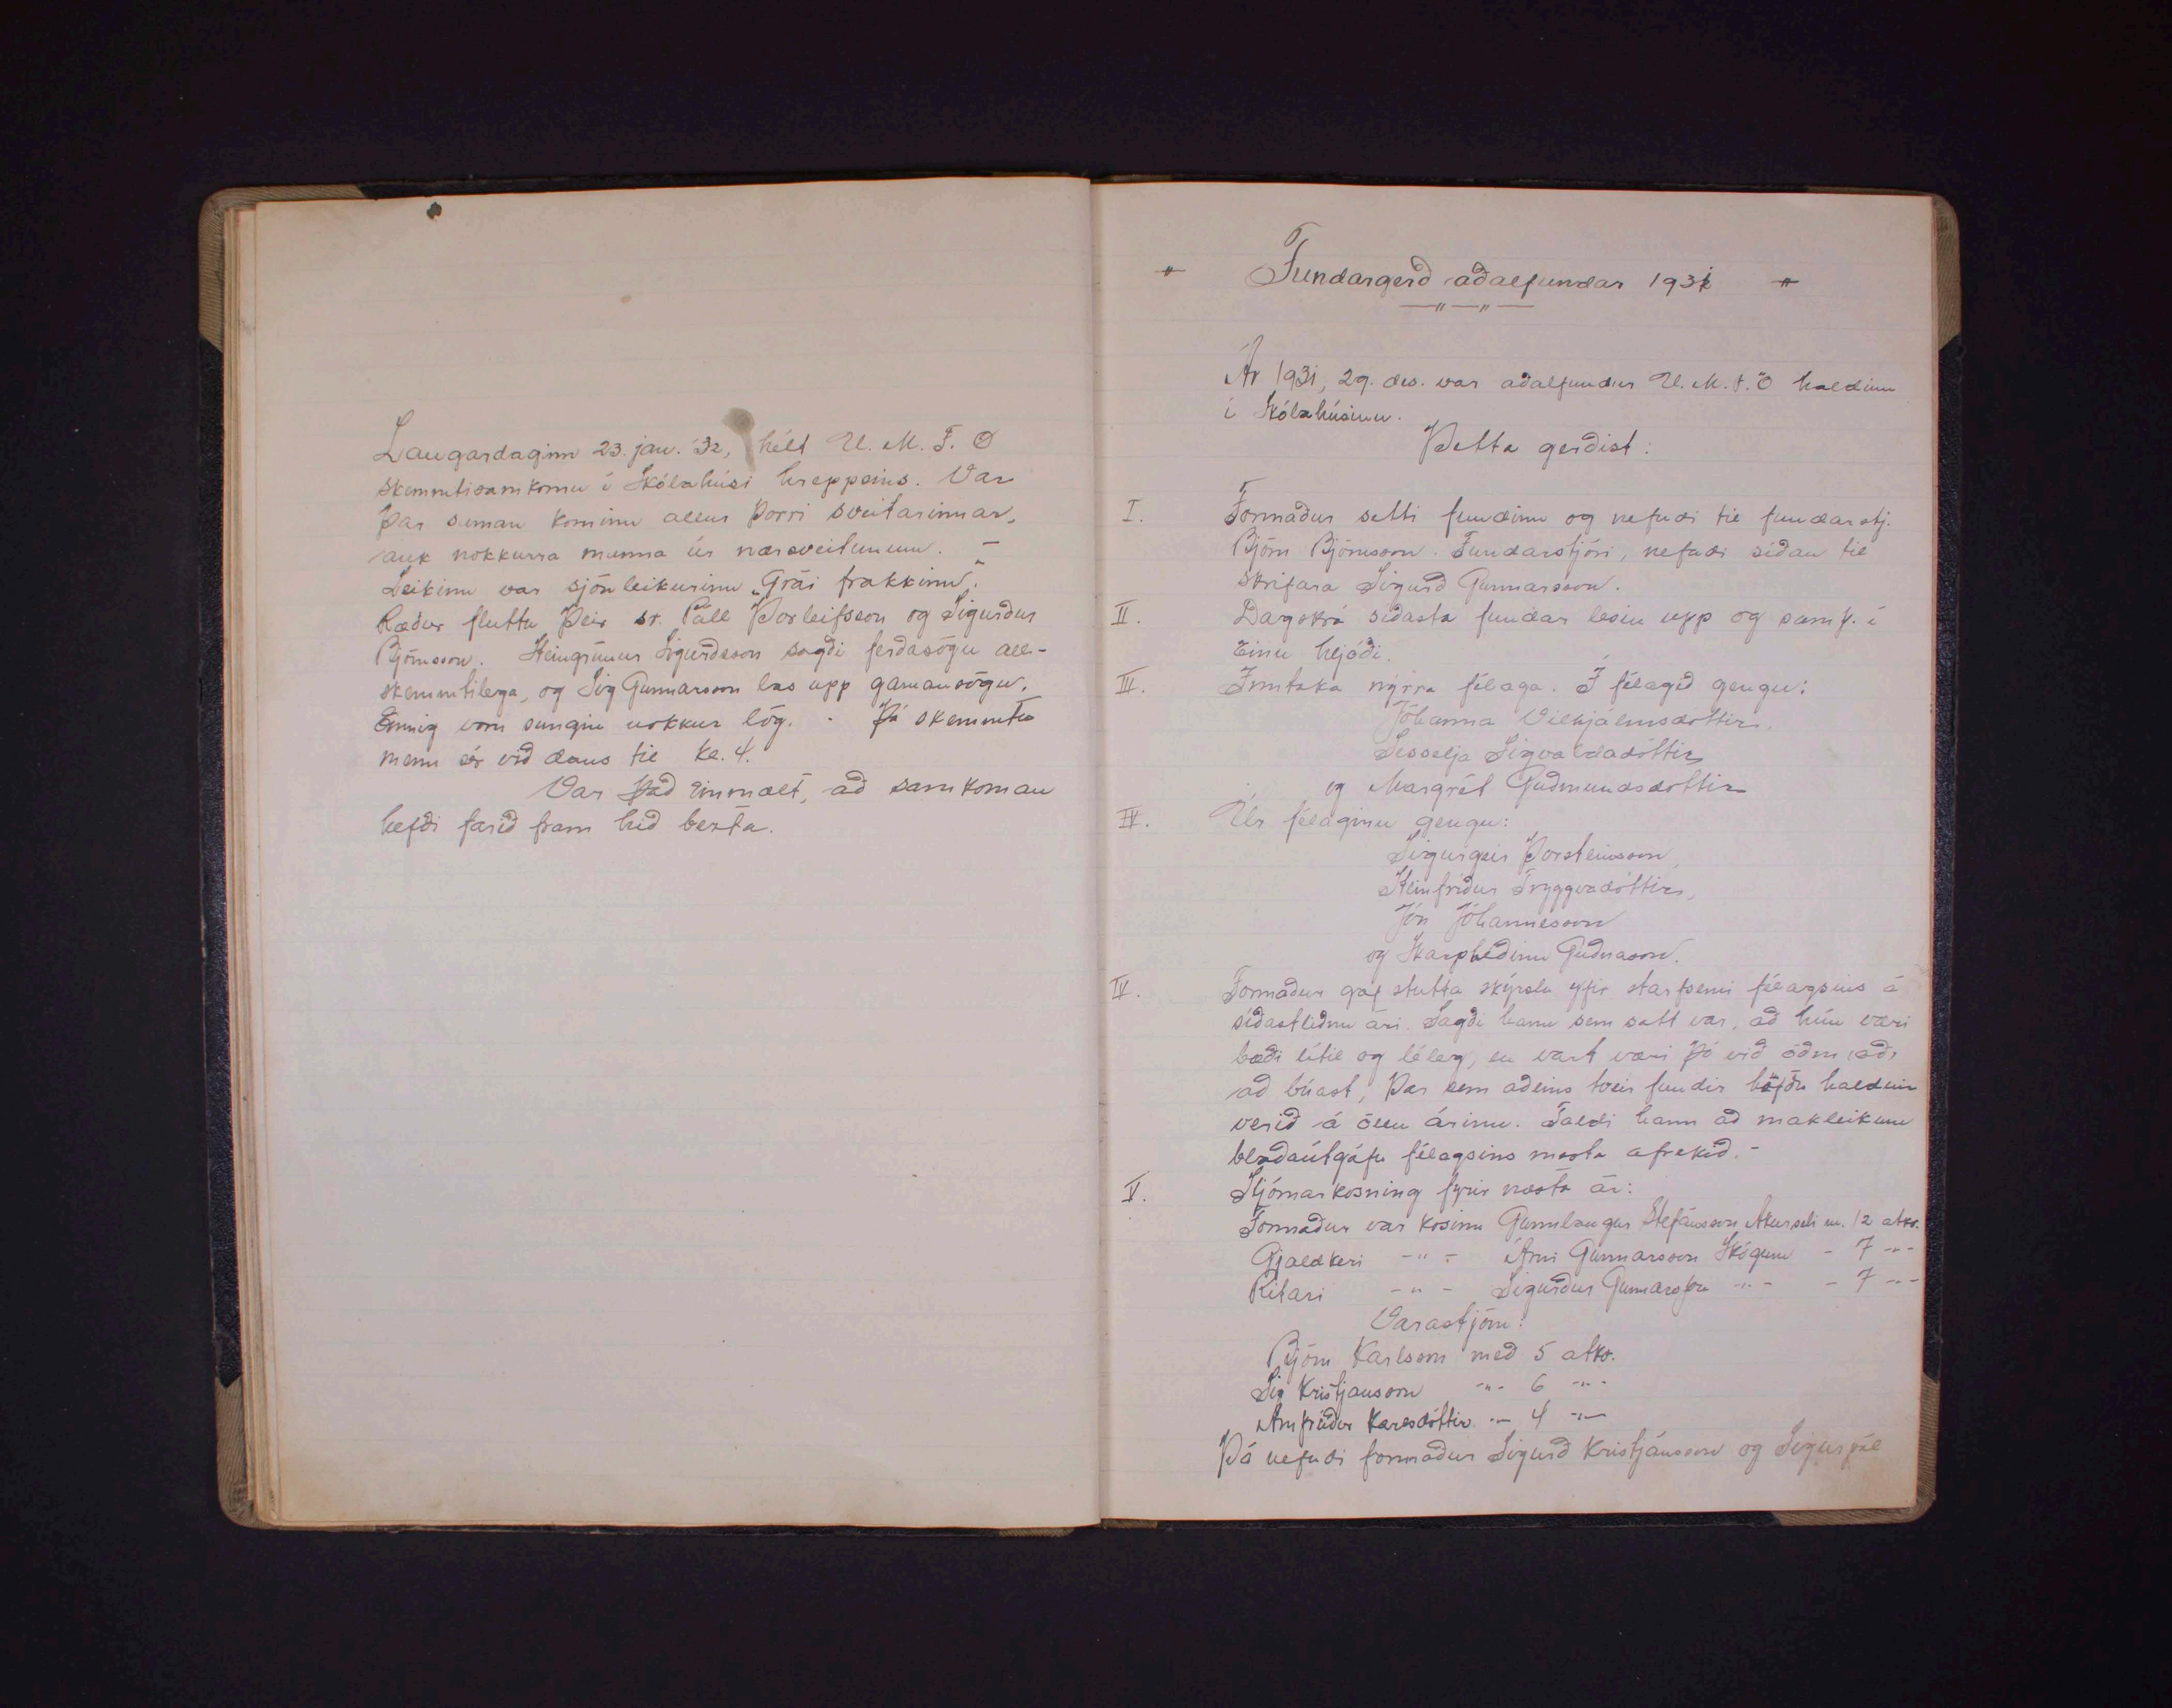 Laugardaginn 23. jan. '32, hélt U. M. F. Ö
skemmtisamkomu í Skólahúsi hreppsins. Var
þar saman kominn allur þorri sveitarinnar,
auk nokkurra manna úr nærsveitunum. –
Leikinn var sjónleikurinn „Grái frakkinn".
Ræður fluttu þeir sr. Páll Þorleifsson og Sigurður
Björnsson. Steingrímur Sigurðsson sagði ferðasögu all-
skemmtilega, og Sig Gunnarsson las upp gamansögu.
Einnig voru sungin nokkur lög. - Þá skemmtu
menn sér við dans til kl. 4.
Var það einmælt, að samkoman
hefði farið fram hið bezta.
" Fundargerð aðalfundar 1931 "
—"—"—
Ár 1931, 29. des. var aðalfundur U. M. F. Ö haldinn
í Skólahúsinu.
Þetta gerðist:
I. Formaður setti fundinn og nefndi til fundarstj.
Björn Björnsson. Fundarstjóri, nefndi síðan til
skrifara Sigurð Gunnarsson.
II. Dagskrá síðasta fundar lesin upp og samþ. í
einu hljóði.
III. Inntaka nýrra félaga. Í félagið gengu:
Jóhanna Vilhjálmsdóttir,
Sesselja Sigvaldadóttir
og Margrét Guðmundsdóttir
IV. Úr félaginu gengu:
Sigurgeir Þorsteinsson,
Steinfríður Tryggvadóttir,
Jón Jóhannesson
og Skarphéðinn Guðnason.
IV. Formaður gaf stutta skýrslu yfir starfsemi félagsins á
síðastliðnu ári. Sagði hann sem satt var, að hún væri
bæði lítil og léleg, en vart væri þó við öðru
að búast, þar sem aðeins tveir fundir höfðu haldnir
verið á öllu árinu. Taldi hann að makleikum
blaðaútgáfu félagsins mesta afrekið. -
V. Stjórnarkosning fyrir næsta ár:
Formaður var kosinn Gunnlaugur Stefánsson Akurseli m. 12 atkv.
Gjaldkeri -"- Árni Gunnarsson Skógum - 7 -"-
Ritari -"- Sigurður Gunnarsson -"- - 7 -"-
Varastjórn:
Björn Karlsson með 5 atkv.
Sig Kristjánsson -"- 6 -"-
Arnþrúður Karlsdóttir -"- 4 -"-
Þá nefndi formaður Sigurð Kristjánsson og Sigurpál